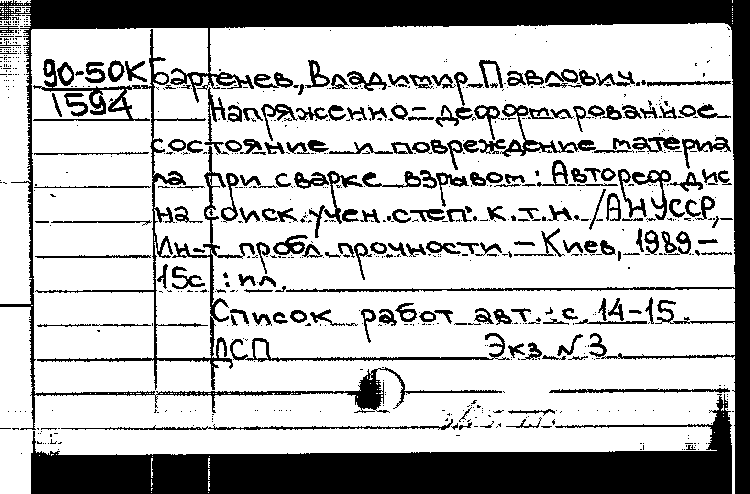 90-50К Бартенев, Владимир Павлович.
1594 Напряженно-деформированное
состояние и повреждение материа
ла при сварке взрывом: Автореф. дис
на соиск. учен. степ. к.т.н. /АНУССР,
Ин-т пробл. прочности. - Киев, 1989.-
15с : ил.
Список работ авт.: с. 14-15.
ДСП Экз N 3.